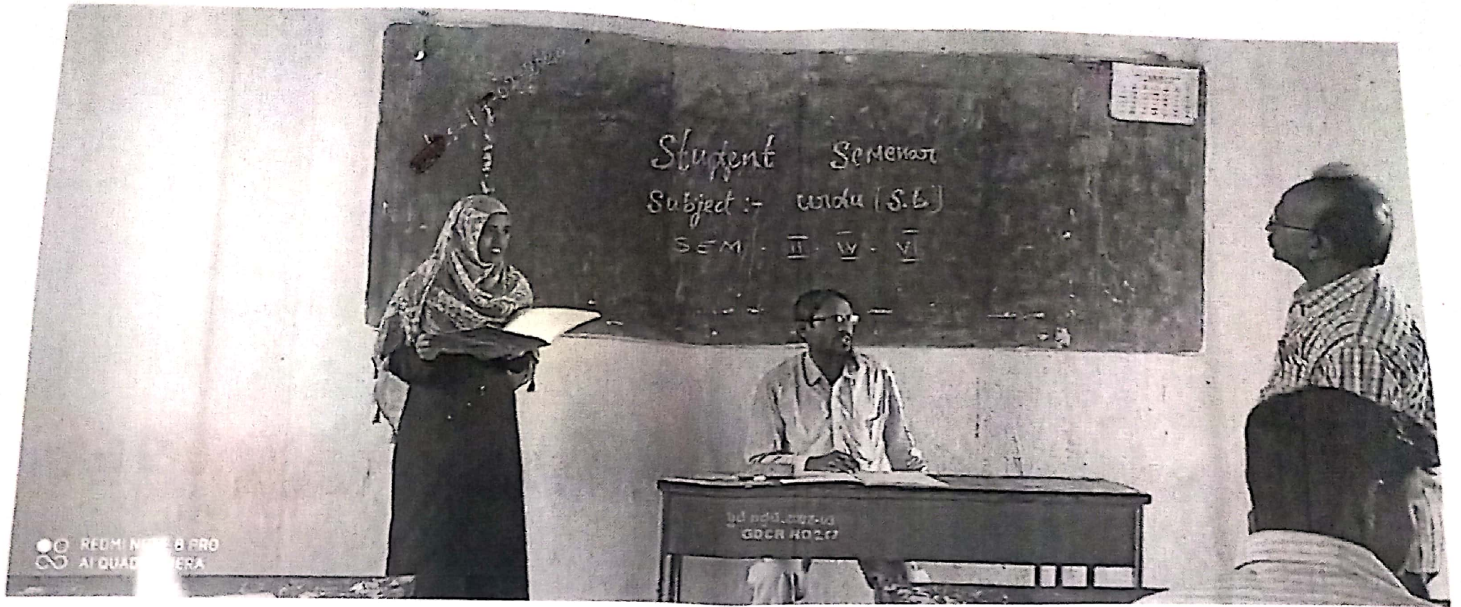 Student Semenar
Subject :- urdu (S.L)
SEM . II . IV . VI
GDCR NO 217
REDMI NOTE 8 PRO
AI QUAD CAMERA